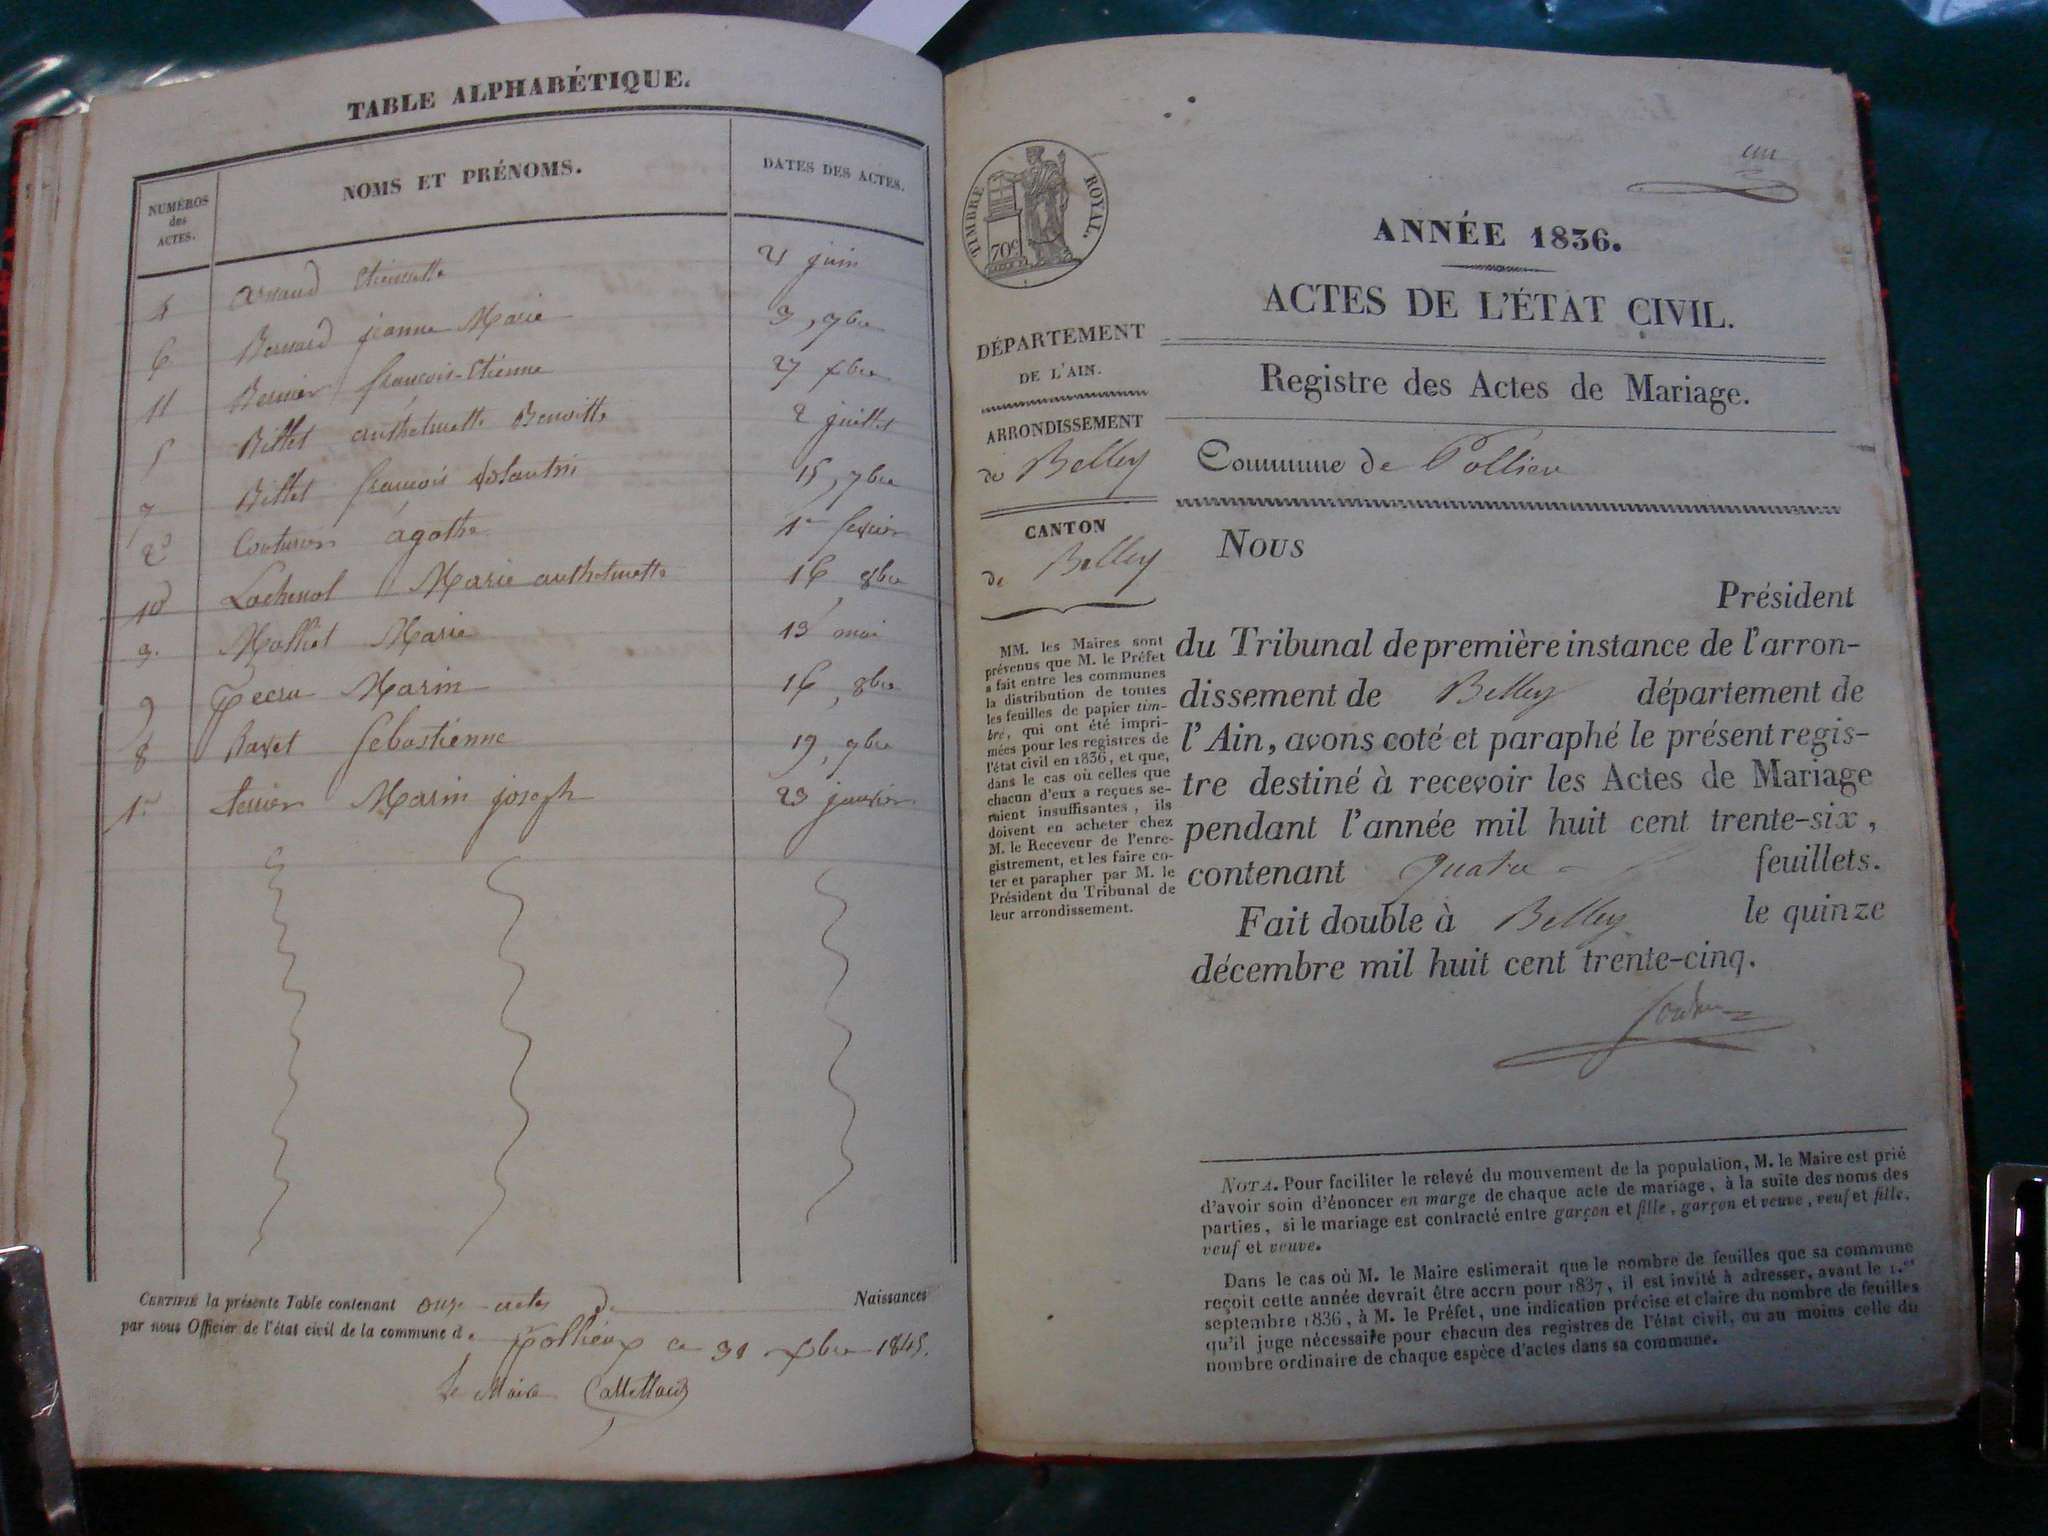 TABLE ALPHABÉTIQUE.
NUMÉROS
des
ACTES.
NOMS ET PRÉNOMS.
DATES DES ACTES.
4 Arnaud Etiennette 21 juin
6 Bernard jeanne Marie 3, 7bre
11 Bernier françois-Etienne 27 xbre
5 Billet anthelmette Benoitte 2 juillet
7 Billet françois 15, 7bre
2 Couturier agathe 1er fevrier
10 Lachenal Marie anthelmette 16, 8bre
3. Molliet Marie 13 mai
9 Pecru Marin 16, 8bre
8 Ravet Sebastienne 19, 7bre
1er Terrier Marin joseph 23 janvier
CERTIFIÉ la présente Table contenant onze actes de Naissances
par nous Officier de l'état civil de la commune de
Pollieux ce 31 xbre 1845.
Le Maire
TIMBRE ROYAL.
70c
un
ANNÉE 1836.
ACTES DE L'ÉTAT CIVIL.
Registre des Actes de Mariage.
Commune de Pollieu
DÉPARTEMENT
DE L'AIN.
ARRONDISSEMENT
de Belley
CANTON
de Belley
MM. les Maires sont
prévenus que M. le Préfet
a fait entre les communes
la distribution de toutes
les feuilles de papier tim-
bré, qui ont été impri-
mées pour les registres de
l'état civil en 1836, et que,
dans le cas où celles que
chacun d'eux a reçues se-
raient insuffisantes, ils
doivent en acheter chez
M. le Receveur de l'enre-
gistrement, et les faire co-
ter et parapher par M. le
Président du Tribunal de
leur arrondissement.
Nous
Président
du Tribunal de première instance de l'arron-
dissement de Belley département de
l'Ain, avons coté et paraphé le présent regis-
tre destiné à recevoir les Actes de Mariage
pendant l'année mil huit cent trente-six,
contenant quatre feuillets.
Fait double à Belley le quinze
décembre mil huit cent trente-cinq.
NOTA. Pour faciliter le relevé du mouvement de la population, M. le Maire est prié
d'avoir soin d'énoncer en marge de chaque acte de mariage, à la suite des noms des
parties, si le mariage est contracté entre garçon et fille, garçon et veuve, veuf et fille,
veuf et veuve.
Dans le cas où M. le Maire estimerait que le nombre de feuilles que sa commune
reçoit cette année devrait être accru pour 1837, il est invité à adresser, avant le 1.er
septembre 1836, à M. le Préfet, une indication précise et claire du nombre de feuilles
qu'il juge nécessaire pour chacun des registres de l'état civil, ou au moins celle du
nombre ordinaire de chaque espèce d'actes dans sa commune.